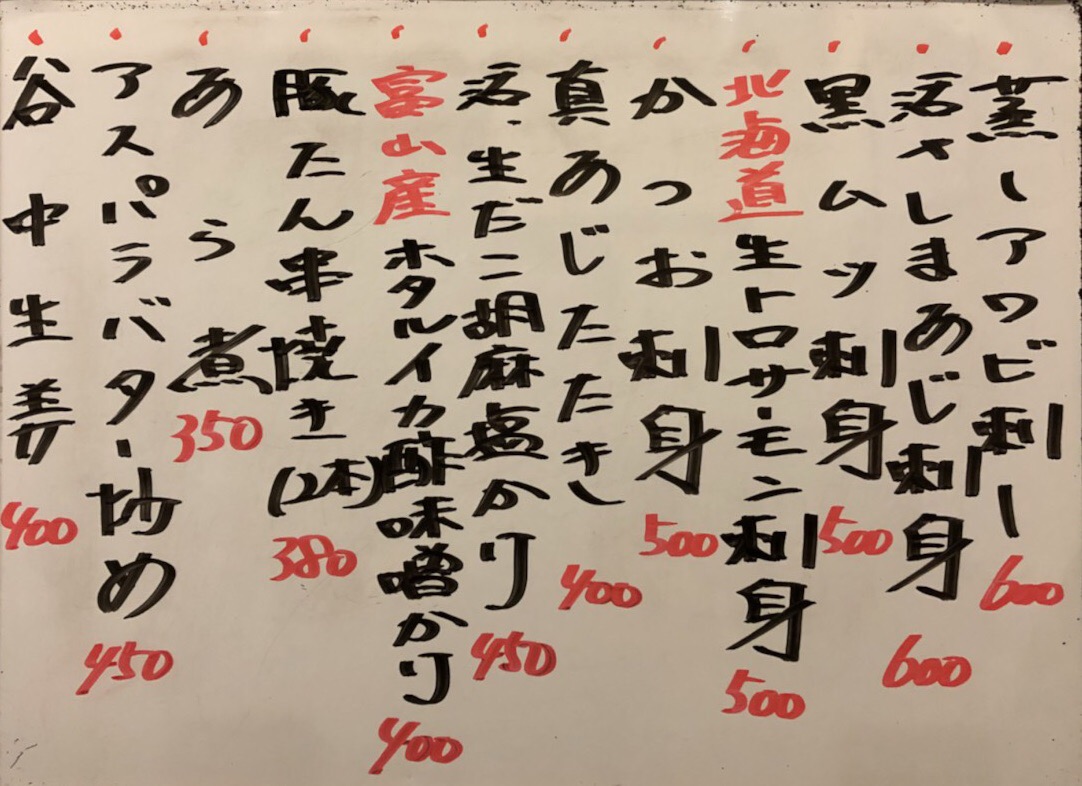 蒸しアワビ刺し 600
活〆しまあじ刺身 600
黒ムツ刺身 500
北海道生トロサーモン刺身 500
かつお刺身 500
真あじたたき 400
活、生だこ胡麻塩かり 450
富山産ホタルイカ酢味噌かり 400
豚たん串焼き(2本) 380
あら煮 350
アスパラバター炒め 450
谷中生姜 400